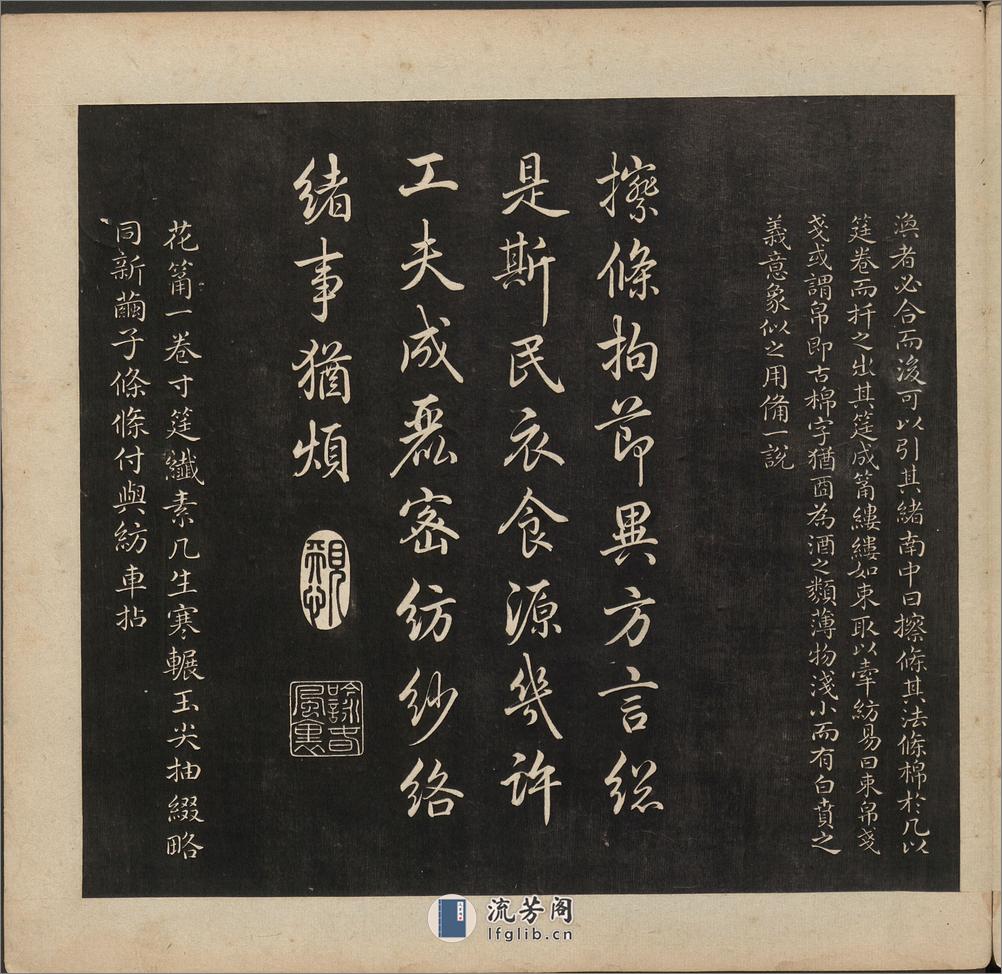 渙者必合而後可以引其緒南中曰擦條其法條棉於几以
筳卷而扞之出其筳成筩縷縷如束取以牽紡易曰束帛戔
戔或謂帛即古棉字猶酉為酒之類薄物淺小而有白賁之
義意象似之用備一說
擦條拘節異方言總
是斯民衣食源幾許
工夫成麗密紡紗絡
緒事猶煩
花筩一卷寸筳纖素几生寒輾玉尖抽綴略
同新繭子條條付與紡車拈
流芳阁
lfglib.cn